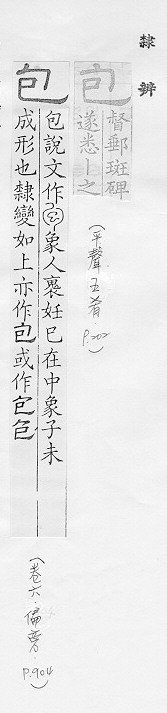 隸辨
包
督郵斑碑
遂悉丨之
(平聲 五肴 P.200)
包
包說文作象人褢妊巳在中象子未
成形也隸變如上亦作包或作包包
(卷六.偏旁. P.904)